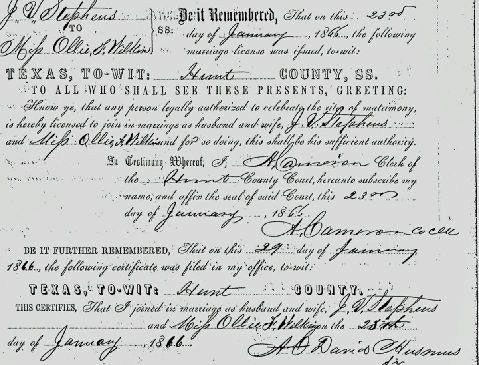 J. V. Stephens
TO
Miss Ollie F. Wilkins
SS:
Be it Remembered, That on this 23rd
day of January 1866 the following
marriage license was issued, to-wit:
TEXAS, TO-WIT: Hunt COUNTY, SS.
TO ALL WHO SHALL SEE THESE PRESENTS, GREETING:
Know ye, that any person legally authorized to celebrate the rites of matrimony,
is hereby licensed to join in marriage as husband and wife, J. V. Stephens
and Miss Ollie F. Wilkins and for so doing, this shall be his sufficient authority.
In Testimony Whereof, I A. Cameron Clerk of
the Hunt County Court, hereunto subscribe my
name, and affix the seal of said Court, this 23rd
day of January 1866
A. Cameron
BE IT FURTHER REMEMBERED, That on this 29 day of January
1866, the following certificate was filed in my office, to-wit:
TEXAS, TO-WIT: Hunt COUNTY.
THIS CERTIFIES, That I joined in marriage as husband and wife, J. V. Stephens
and Miss Ollie F. Wilkins on the 25th
day of January 1866
A. David